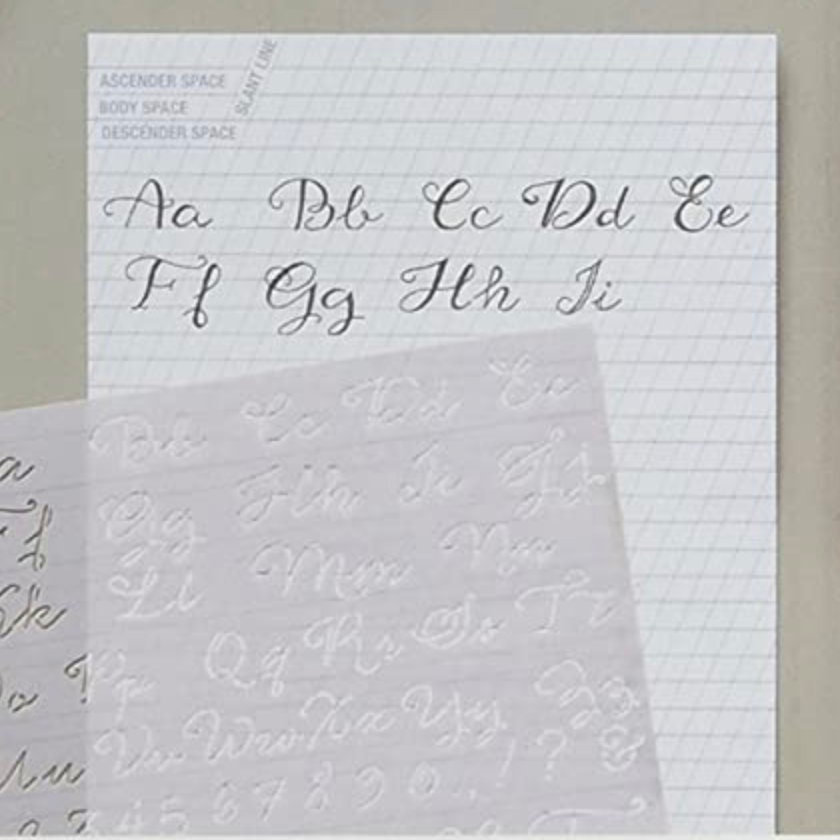 ASCENDER SPACE
SLANT LINE
BODY SPACE
DESCENDER SPACE
Aa Bb Cc Dd Ee
Ff Gg Hh Ii
Bb Cc Dd Ee
a Gg Hh Ii Jj
Ff Ll Mm Nn
Kk Pp Qq Rr Ss Tt
Vv Ww Xx Yy Zz
Uu 4 5 6 7 8 9 0 . , ! ? &